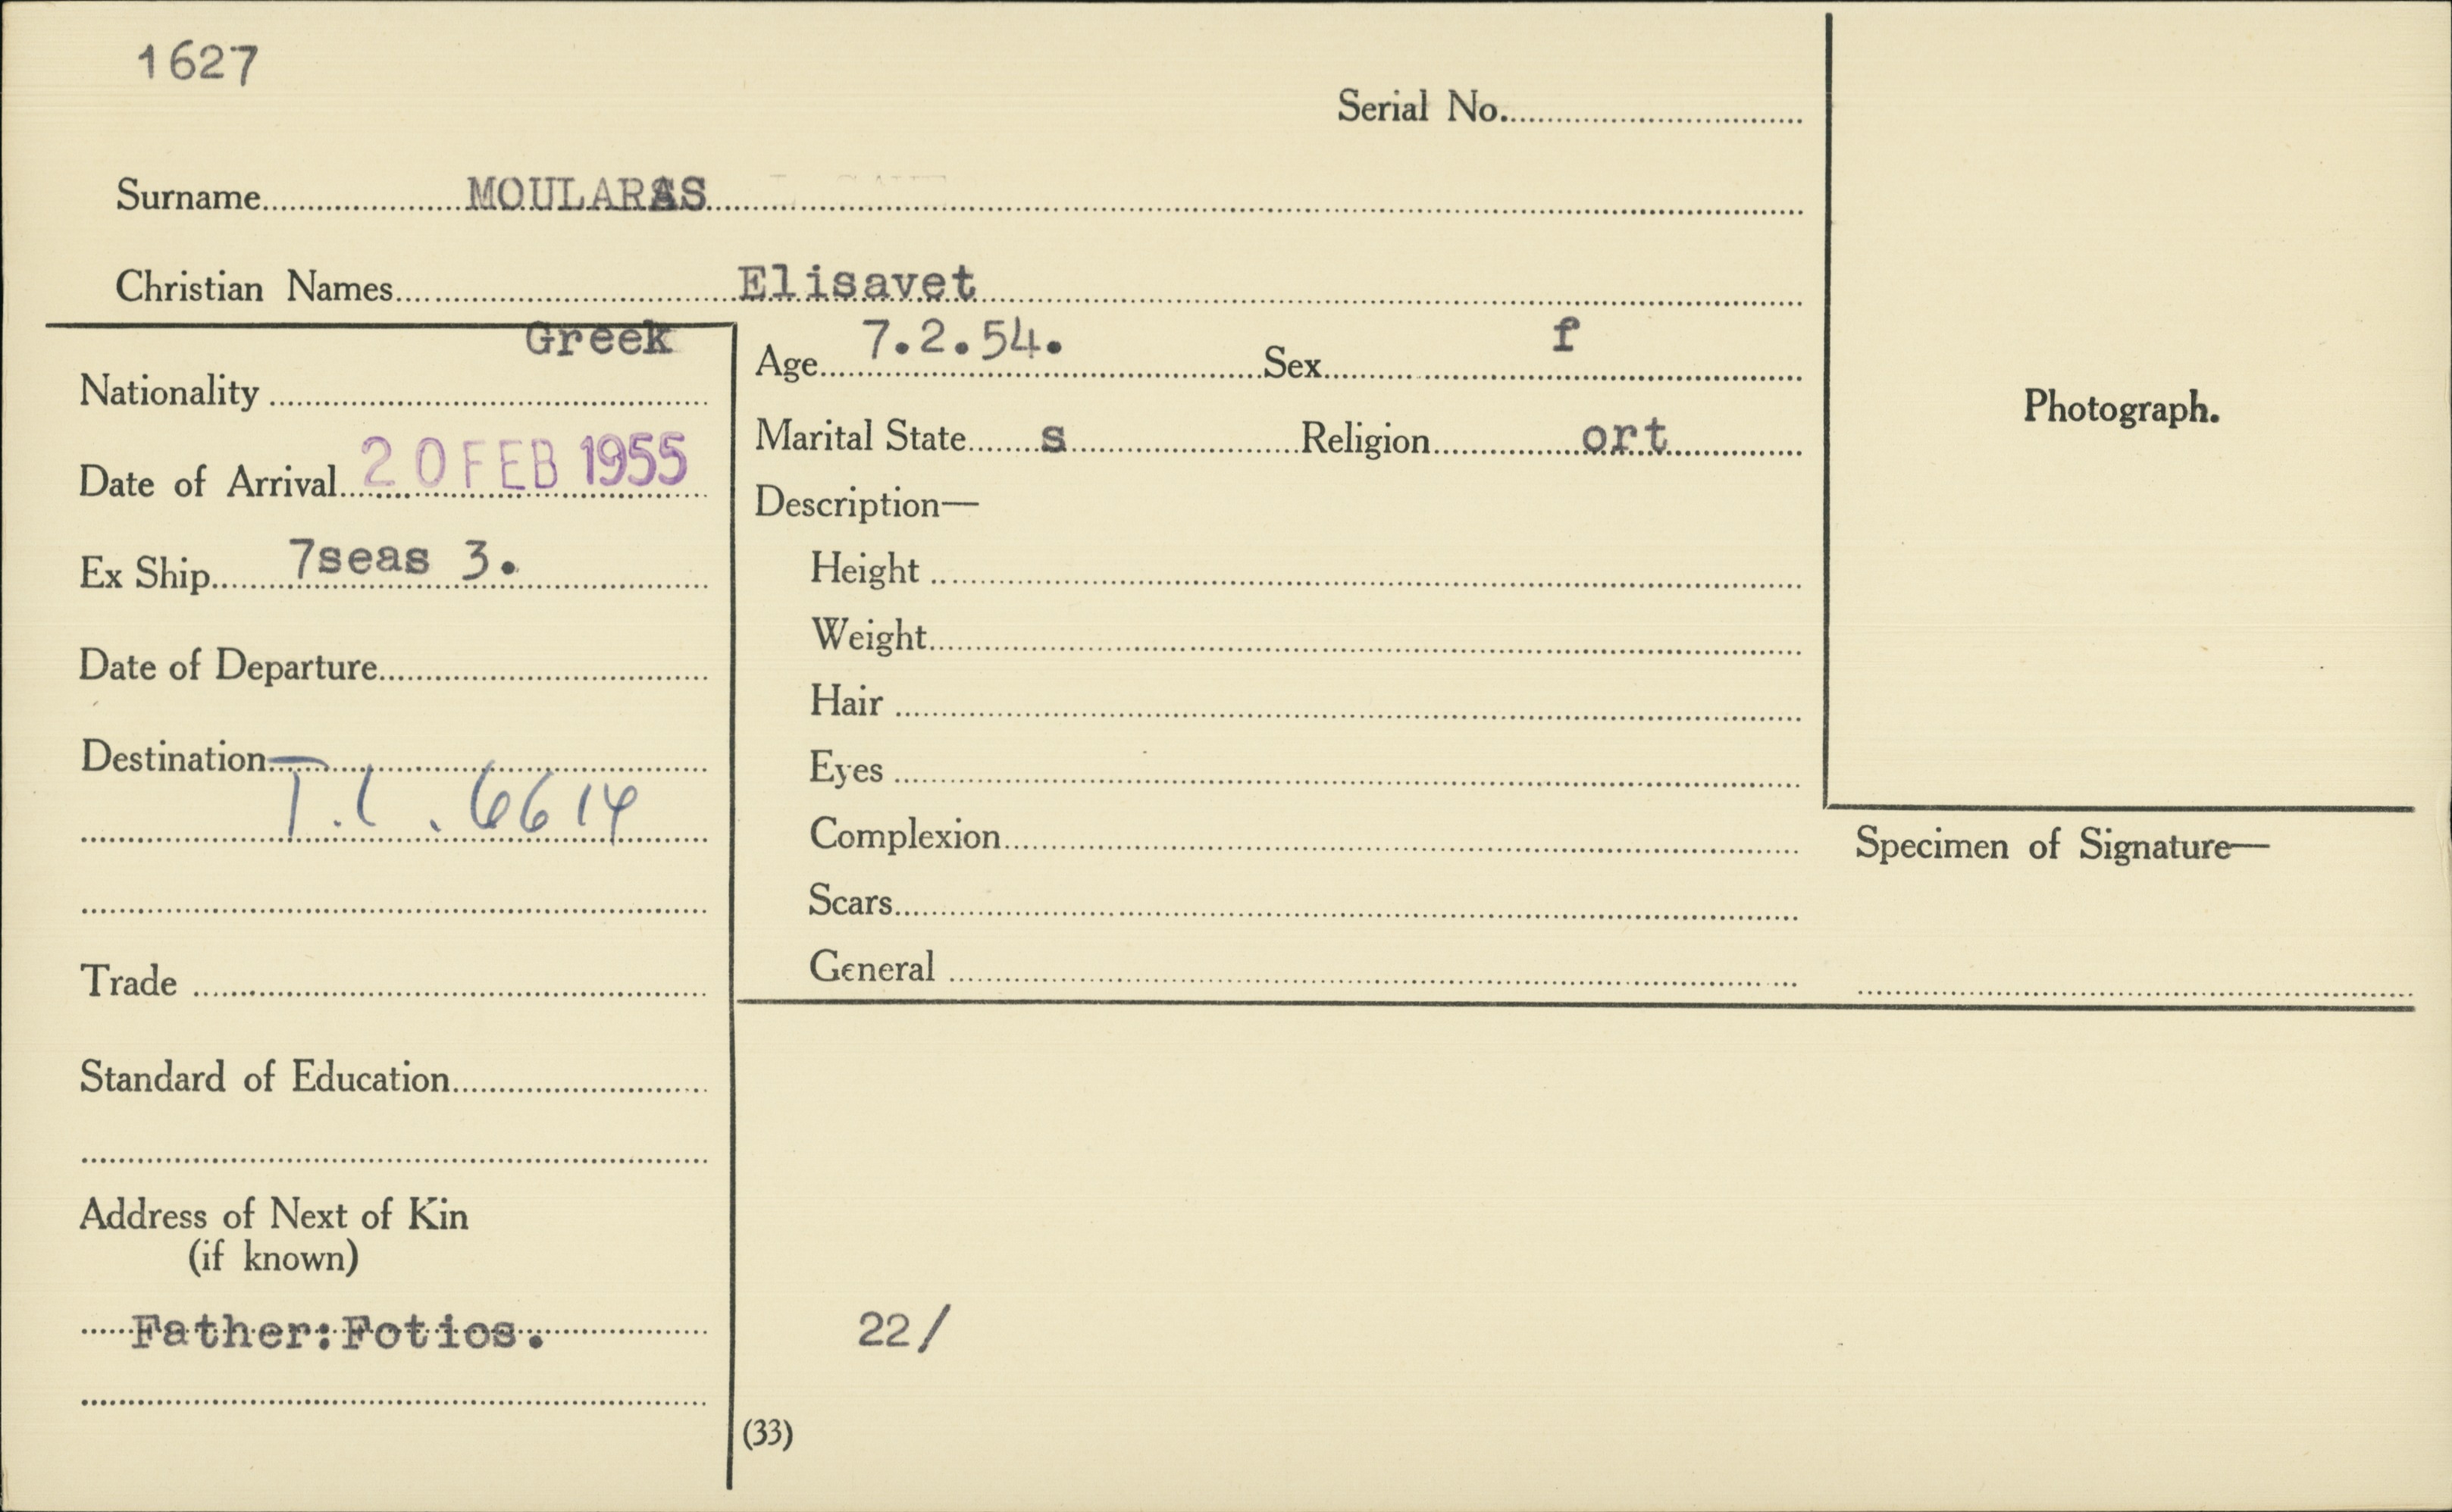 1627
Serial No.
Surname MOULARAS
Christian Names Elisavet
Nationality Greek
Date of Arrival 20 FEB 1955
Ex Ship 7seas 3.
Date of Departure
Destination
T.L. 6614
Trade
Standard of Education
Address of Next of Kin
(if known)
Father:Fotios.
Age 7.2.54. Sex f
Marital State s Religion ort
Description—
Height
Weight
Hair
Eyes
Complexion
Scars
General
22/
(33)
Photograph.
Specimen of Signature—